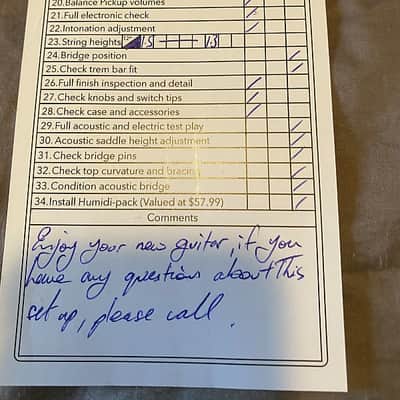 20.Balance Pickup volumes
21.Full electronic check
22.Intonation adjustment
23.String heights 1.5 1.5
24.Bridge position
25.Check trem bar fit
26.Full finish inspection and detail
27.Check knobs and switch tips
28.Check case and accessories
29.Full acoustic and electric test play
30.Acoustic saddle height adjustment
31.Check bridge pins
32.Check top curvature and bracing
33.Condition acoustic bridge
34.Install Humidi-pack (Valued at $57.99)
Comments
Enjoy your new guitar, if you
have any questions about This
set up, please call.